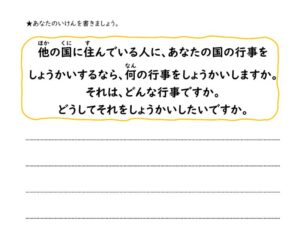 ★あなたのいけんを書きましょう。
ほか くに す
他の国に住んでいる人に、あなたの国の行事を
なん
しょうかいするなら、何の行事をしょうかいしますか。
それは、どんな行事ですか。
どうしてそれをしょうかいしたいですか。